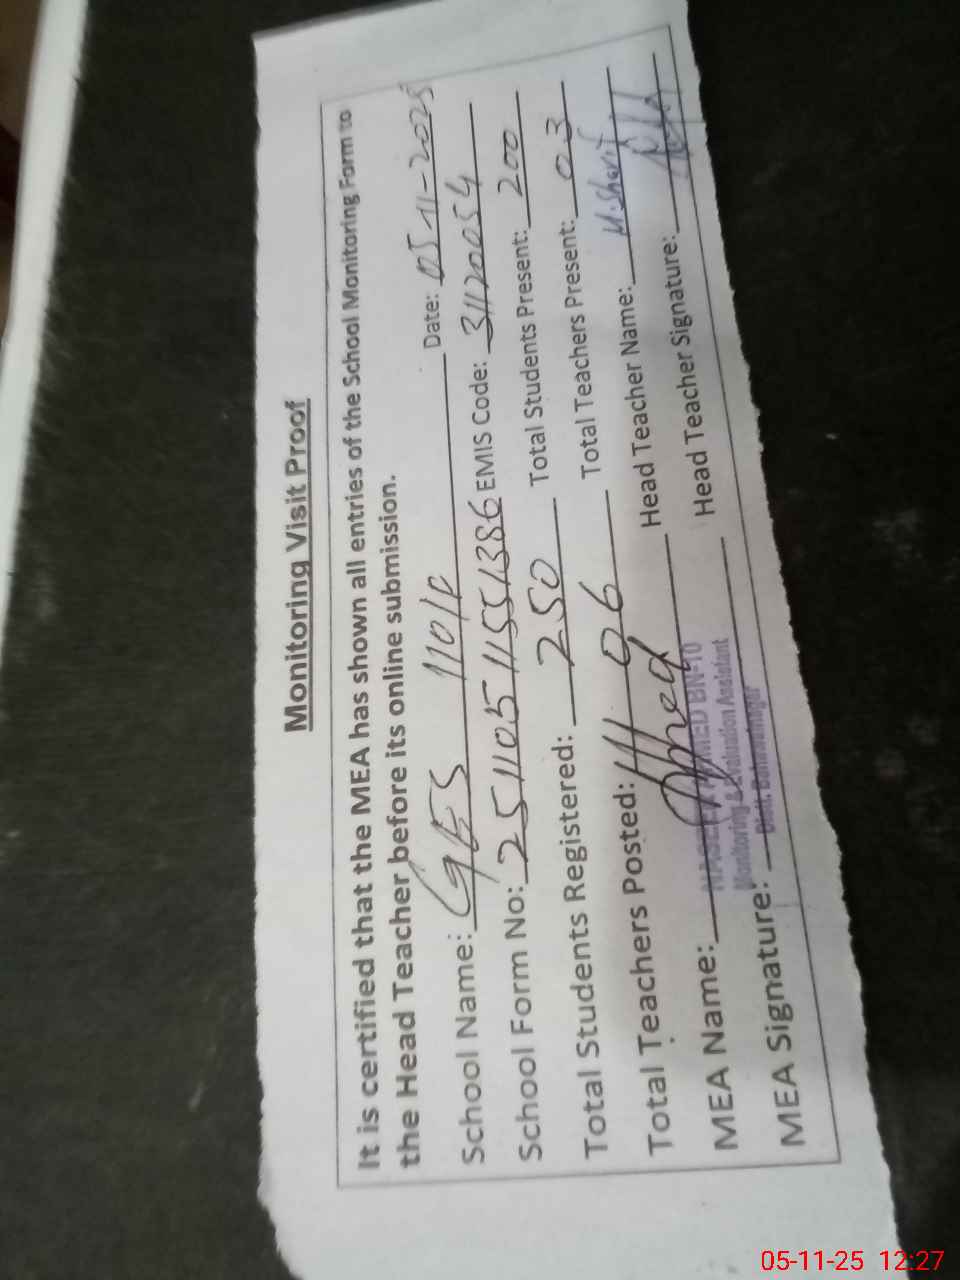 Monitoring Visit Proof
It is certified that the MEA has shown all entries of the School Monitoring Form to
the Head Teacher before its online submission.
School Name: GES 110/P Date: 05-11-2025
School Form No: 25110511551386 EMIS Code: 31120054
Total Students Registered: 250 Total Students Present: 200
Total Teachers Posted: 06 Total Teachers Present: 03
MEA Name: Head Teacher Name: M.Sharif
AHMED BN-10
Monitoring & Evaluation Assistant
MEA Signature: Distt. Bahawalnagar Head Teacher Signature:
05-11-25 12:27